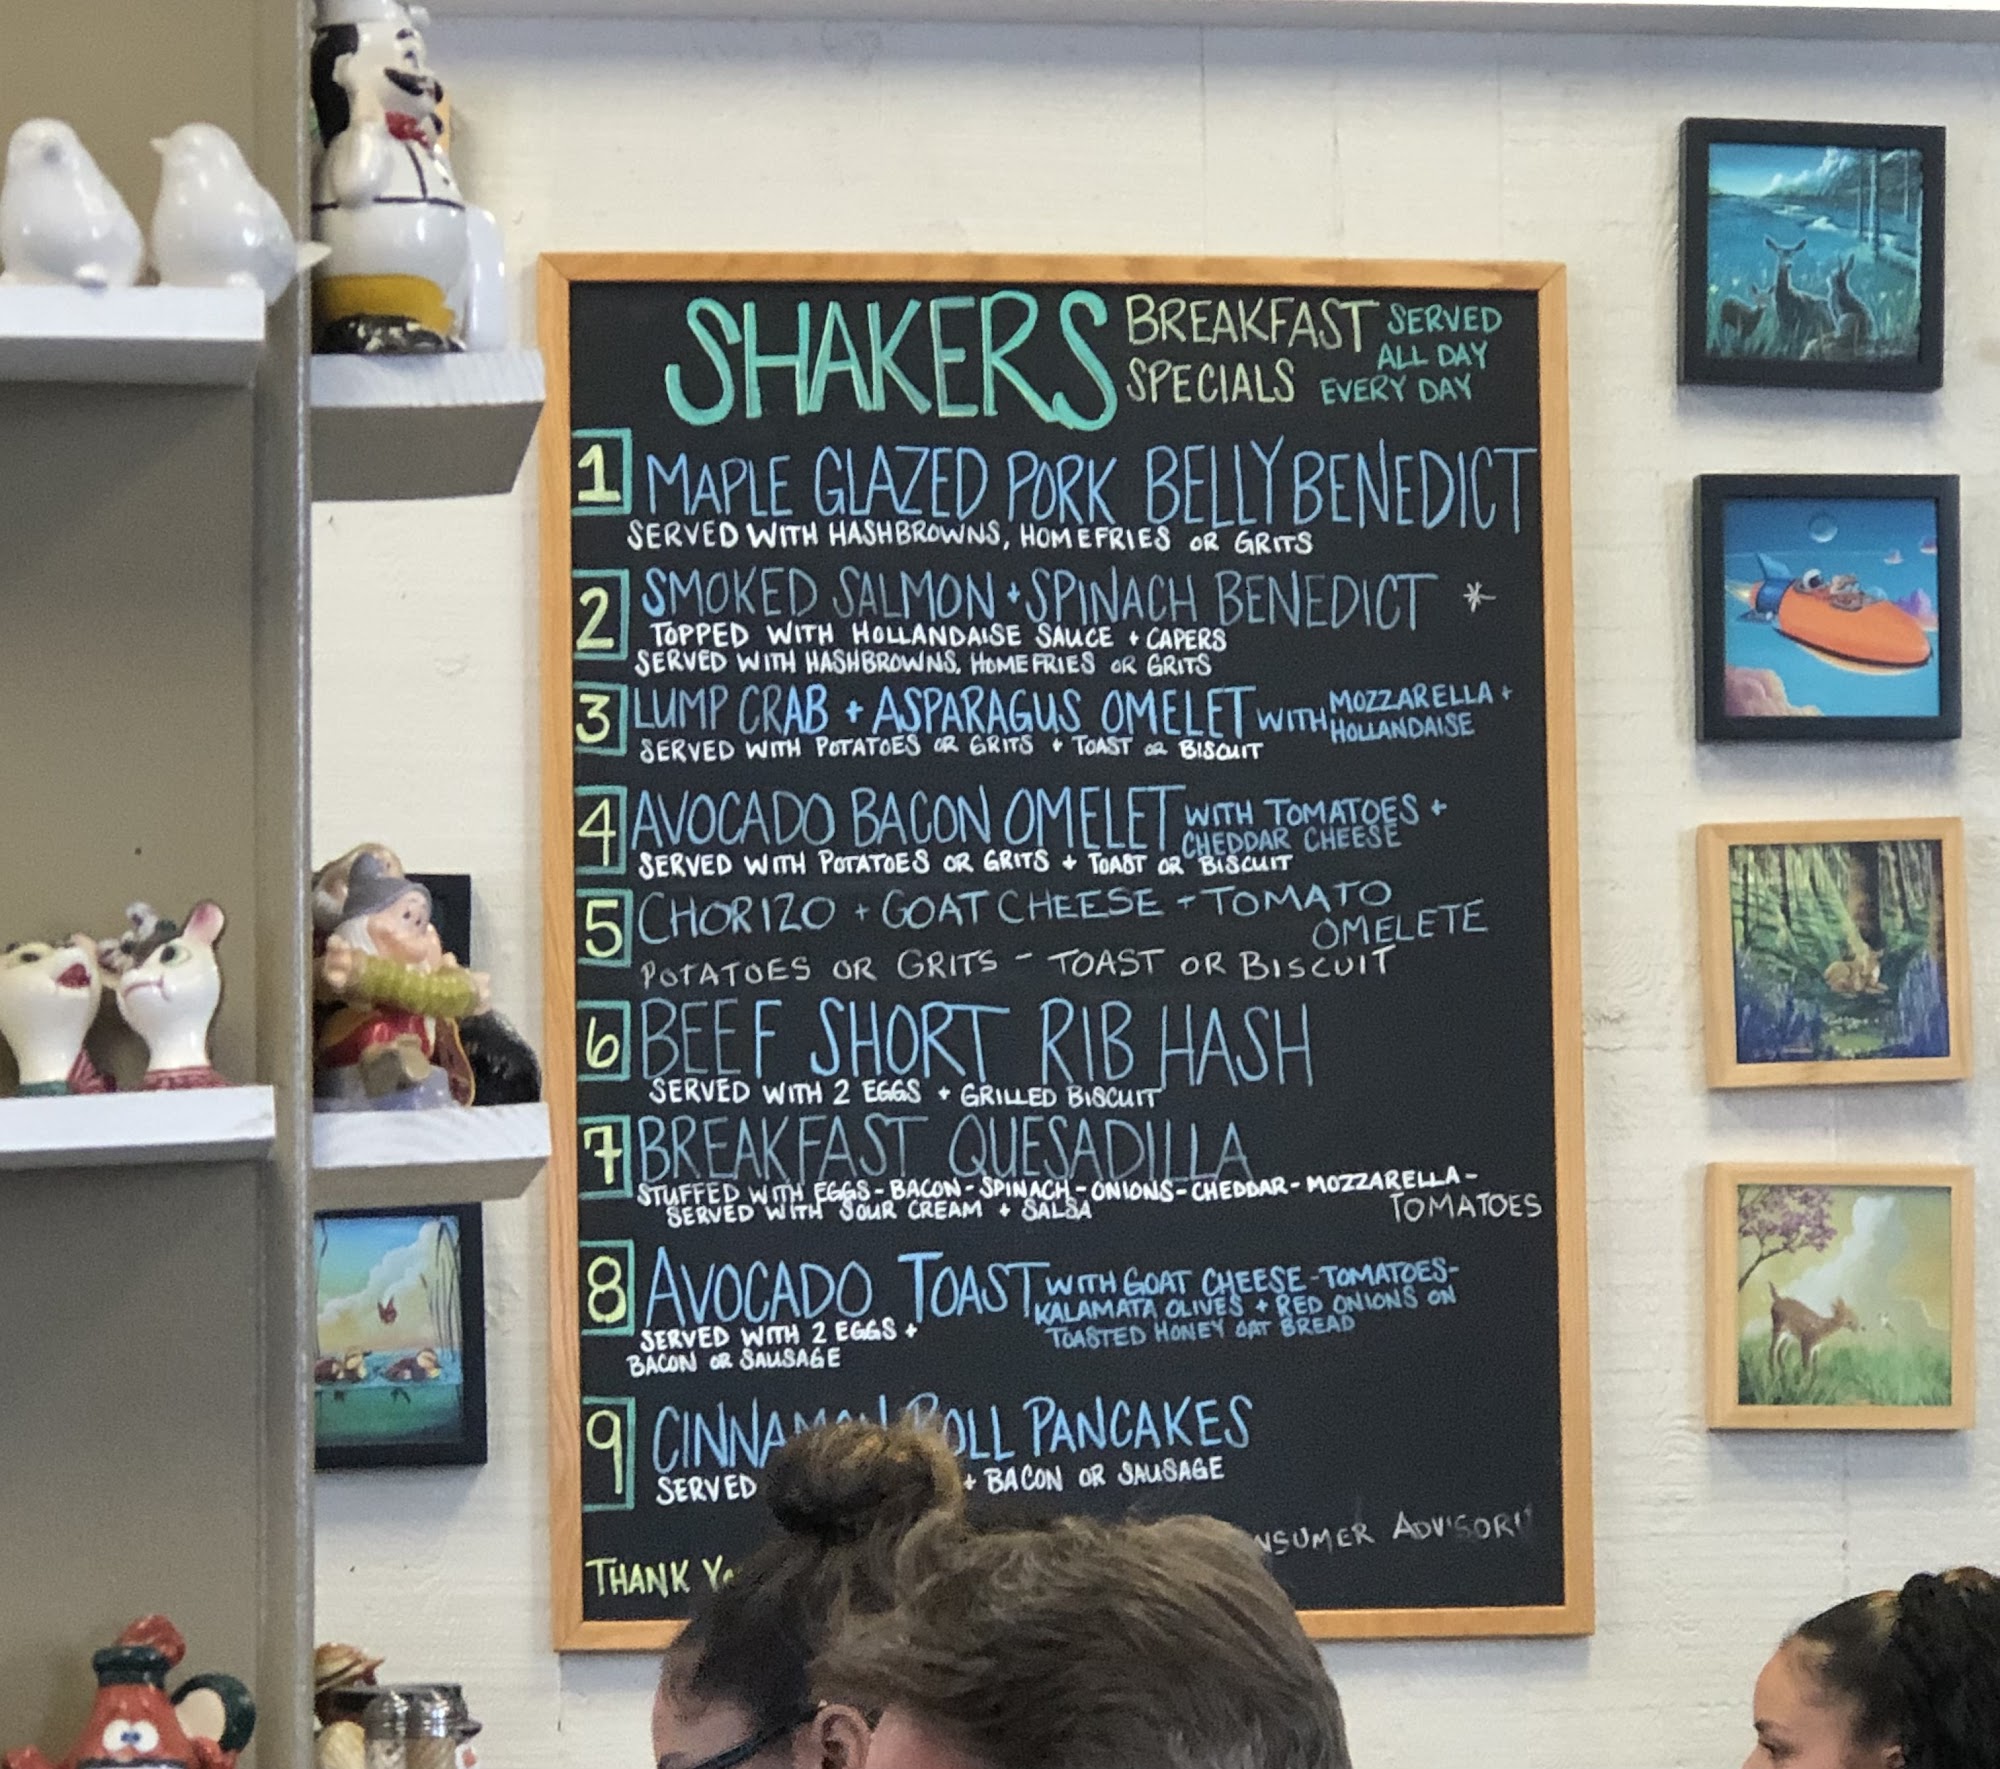 SHAKERS BREAKFAST SPECIALS SERVED ALL DAY EVERY DAY
1 MAPLE GLAZED PORK BELLY BENEDICT
SERVED WITH HASHBROWNS, HOMEFRIES OR GRITS
2 SMOKED SALMON + SPINACH BENEDICT *
TOPPED WITH HOLLANDAISE SAUCE + CAPERS
SERVED WITH HASHBROWNS, HOMEFRIES OR GRITS
3 LUMP CRAB + ASPARAGUS OMELET WITH MOZZARELLA + HOLLANDAISE
SERVED WITH POTATOES OR GRITS + TOAST OR BISCUIT
4 AVOCADO BACON OMELET WITH TOMATOES + CHEDDAR CHEESE
SERVED WITH POTATOES OR GRITS + TOAST OR BISCUIT
5 CHORIZO + GOAT CHEESE + TOMATO
OMELETE
POTATOES OR GRITS - TOAST OR BISCUIT
6 BEEF SHORT RIB HASH
SERVED WITH 2 EGGS + GRILLED BISCUIT
7 BREAKFAST QUESADILLA
STUFFED WITH EGGS - BACON - SPINACH - ONIONS - CHEDDAR - MOZZARELLA -
TOMATOES
SERVED WITH SOUR CREAM + SALSA
8 AVOCADO TOAST WITH GOAT CHEESE - TOMATOES -
KALAMATA OLIVES + RED ONIONS ON
TOASTED HONEY OAT BREAD
SERVED WITH 2 EGGS +
BACON OR SAUSAGE
9 CINNAMON ROLL PANCAKES
SERVED + BACON OR SAUSAGE
ADVISORY
THANK